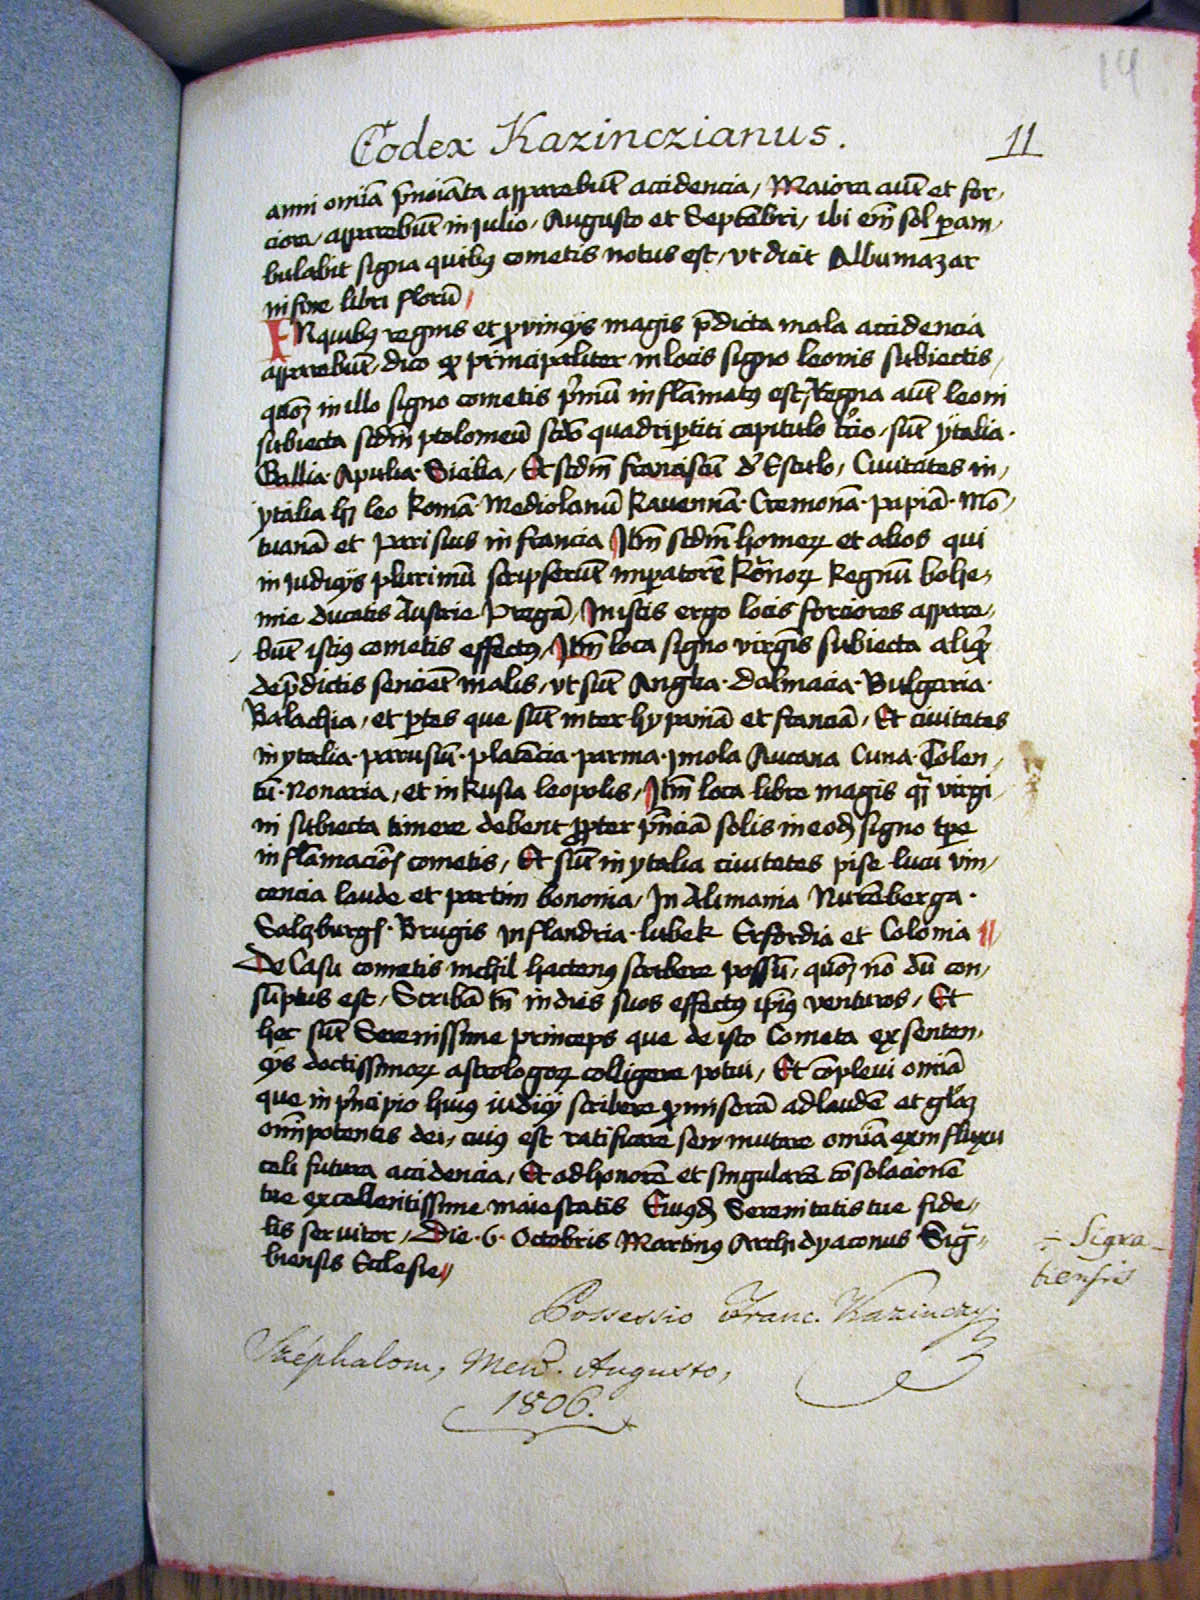 14
Codex Kazinczianus. 11
anni om̄ia p̄noiāta apparebūt accidencia / Maiora aūt et for,
ciora / apparebūt in julio / Augusto et Septēbri / ibi em̄ sol ꝑam,
bulabit signa quibꝰ cometis notus est / vt dicit Albumazar
in fine libri florū /
IN quibꝰ regnis et ꝓvincijs magis p̄dicta mala accidencia
apparebūt / dico ꝙ principaliter in locis signo leonis subiectis /
quoꝫ in illo signo cometis p̄mū inflāmatꝰ est / Regna aūt leoni
subiecta scdm̄ ptolomeū scdo quadriꝑtiti capitulo t̄cio / sūt ytalia ·
Gallia · Apulia · Sicilia / Et scdm̄ franciscū d̄ Esculo / Ciuitates in /
ytalia hꝫ leo Romā · Mediolanū Ravennā · Cremonā · papiā · Mō /
tuanā et Parisius in francia Itm̄ scdm̄ homeꝝ et alios qui
in judicijs plurimū scripserūt imꝑatorē Rōnoꝝ Regnū bohe,
mie ducatis Austrie Pragā / In istis ergo locis forciores appare,
būt istiꝰ cometis effectꝰ / Itm̄ loca signo virgīs subiecta aliqͥd
de p̄dictis sencient malis / vt sūt Anglia · Dalmacia · Bulgaria ·
Balachia / et ꝑtes que sūt inter hyspaniā et franciā / Et ciuitates
in ytalia · parusiū · placēcia · parma · Imola Aucana Cuna · Tolen,
tū · Nonaria / et in Rusia leopolis / Itm̄ loca libre magis qͣꝫ virgi /
ni subiecta timere debent ꝓpter p̄nciā solis in eodꝫ signo tꝑe
inflāmacioꝭ cometis / Et sūt in ytalia ciuitates pise luca vin,
cencia laude et partim bononia / In Alimania Nurēberga ·
Salczburgꝭ · Brugis in flandria · lubek Erfordia et Colonia //
De Casu cometis nichil hactenꝰ scribere possū / quoꝫ nō dū con,
sūptus est / Scribā tn̄ in dies suos effectꝰ ip̄iꝰ venturos / Et
hec sūt Serenissime princeps que de isto Cometa ex senten,
cijs doctissimoꝝ astrologoꝝ colligere potui / Et cōplevi om̄ia
que in p̄ncipio huiꝰ iudicij scribere ꝓmiserā ad laudē et gl̄aꝫ
om̄ipotentis dei / cuiꝰ est ratificare seu mutare om̄ia ex influxu
celi futura accidencia / Et ad honorē et singularē cōsolacionē
tue excellentissime maiestatis Eiusdꝫ Serenitatis tue fide,
lis servitor / Die · 6 · Octobris Martinꝰ Archidyaconus Sigᷓ
biensis Ecclesie //
÷ Sigra
biensis
Possessio Franc. Kazinczy.
Széphalom, Mens. Augusto,
1806.